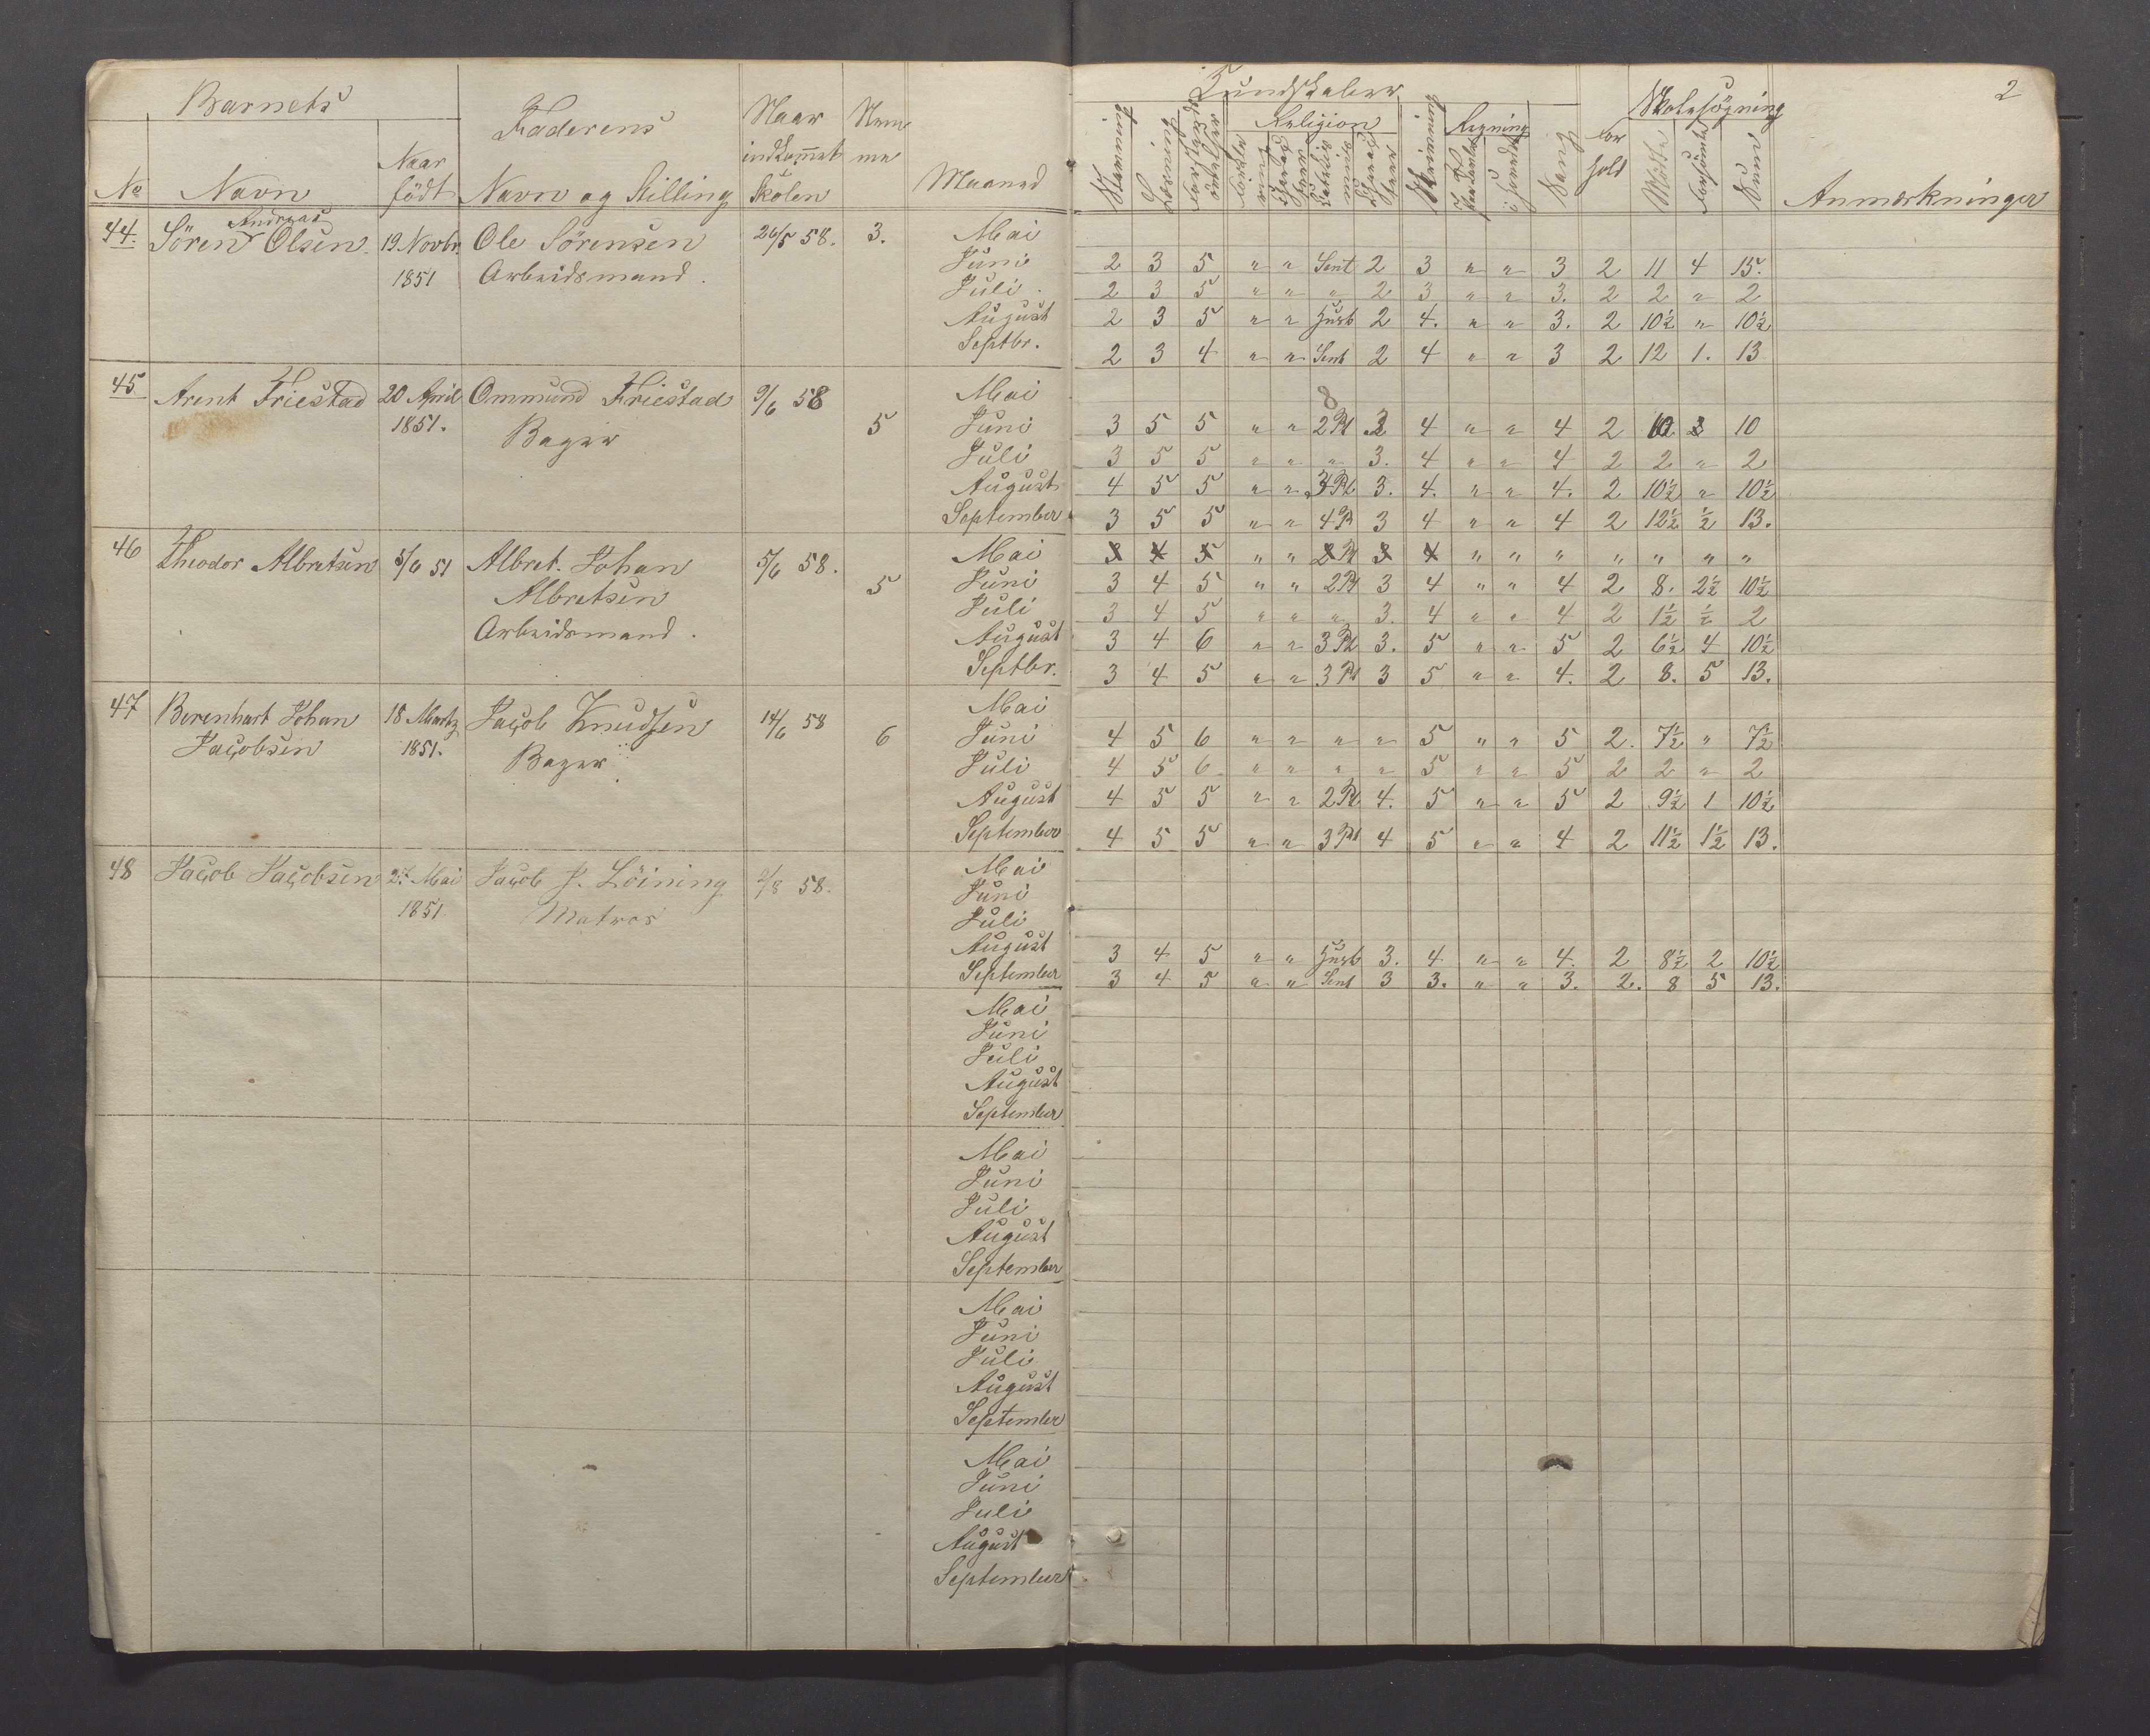 2
Barnets
Faderens
Naar indkommet Skolen
Maaned
Kundskaber
Religion
Regning
Skolesögning
No Navn
Naar födt
Navn og Stilling
Stavning
Læsning
Skrivning
Sang
Forhold
Mödte
Forsömte
Sum
Anmærkninger
44. Sören Andreas Olsen. 19 Novbr. 1851 Ole Sörensen Arbeidsmand. 26/5 58. 3.
Mai
Juni 2 3 5 " " Lent 2 3 " " 3 2 11 4 15.
Juli. 2 3 5 " " " 2 3 " " 3. 2 2 " 2
August 2 3 5 " " 2 4. " " 3. 2 10½ " 10½
Septbr. 2 3 4 " " Lent 2 4 " " 3 2 12 1. 13
45 Arent Friestad 20 April 1851. Ommund Friestad Bager 9/6 58 5
Mai 8
Juni 3 5 5 " " 2 Pt 4 " " 4 2 10 10
Juli 3 5 5 " " " 3. 4 " " 4 2 2 " 2
August 4 5 5 " " 3 Pt 3. 4. " " 4. 2 10½ " 10½
September 3 5 5 " " 4 Pt 3 4 " " 4 2 12½ ½ 13.
46 Theodor Albretsen 5/6 51 Albret Johan Albretsen Arbeidsmand. 5/6 58. 5
Mai 3 4 5 " " 2 Pt 3 4 " " " " " " "
Juni 3 4 5 " " 2 Pt 3 4 " " 4 2 8. 2½ 10½
Juli 3 4 5 " " " 3. 4 " " 4 2 1½ ½ 2
August 3 4 6 " " 3 Pt 3. 5 " " 5 2 6½ 4 10½
Septbr. 3 4 5 " " 3 Pt 3 5 " " 4. 2 8. 5 13.
47 Berenhart Johan Jacobsen 18 Martz 1851. Jacob Knudsen Bager 14/6 58 6
Mai
Juni 4 5 6 " " " " 5 " " 5 2. 7½ " 7½
Juli 4 5 6 " " " " 5 " " 5 2 2 " 2
August 4 5 5 " " 2 Pt 4. 5 " " 5 2 9½ 1 10½
September 4 5 5 " " 3 Pt 4 5 " " 4 2 11½ 1½ 13.
48 Jacob Jacobsen Mai 1851 Jacob J. Löining Matros 58.
Mai
Juni
Juli
August 3 4 5 " " 3. 4 " " 4. 2 8½ 2 10½
September 3 4 5 " " Lent 3 3. " " 3. 2. 8 5 13.
Mai
Juni
Juli
August
September
Mai
Juni
Juli
August
September
Mai
Juni
Juli
August
September
Mai
Juni
Juli
August
September